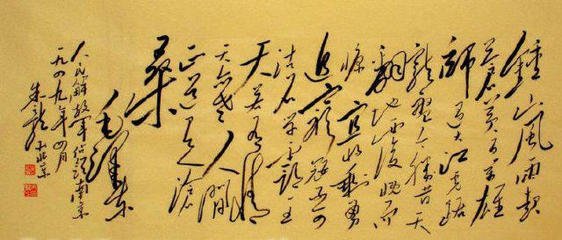 鍾山风雨起
苍黄百万雄
師过大江虎踞
龍盤今勝昔天
翻地覆慨而
慷宜将剩勇
追窮寇不可
沽名学霸王
天若有情
天亦老人间
正道是滄
桑
毛泽东
人民解放军佔领南京
一九四九年四月
于北京